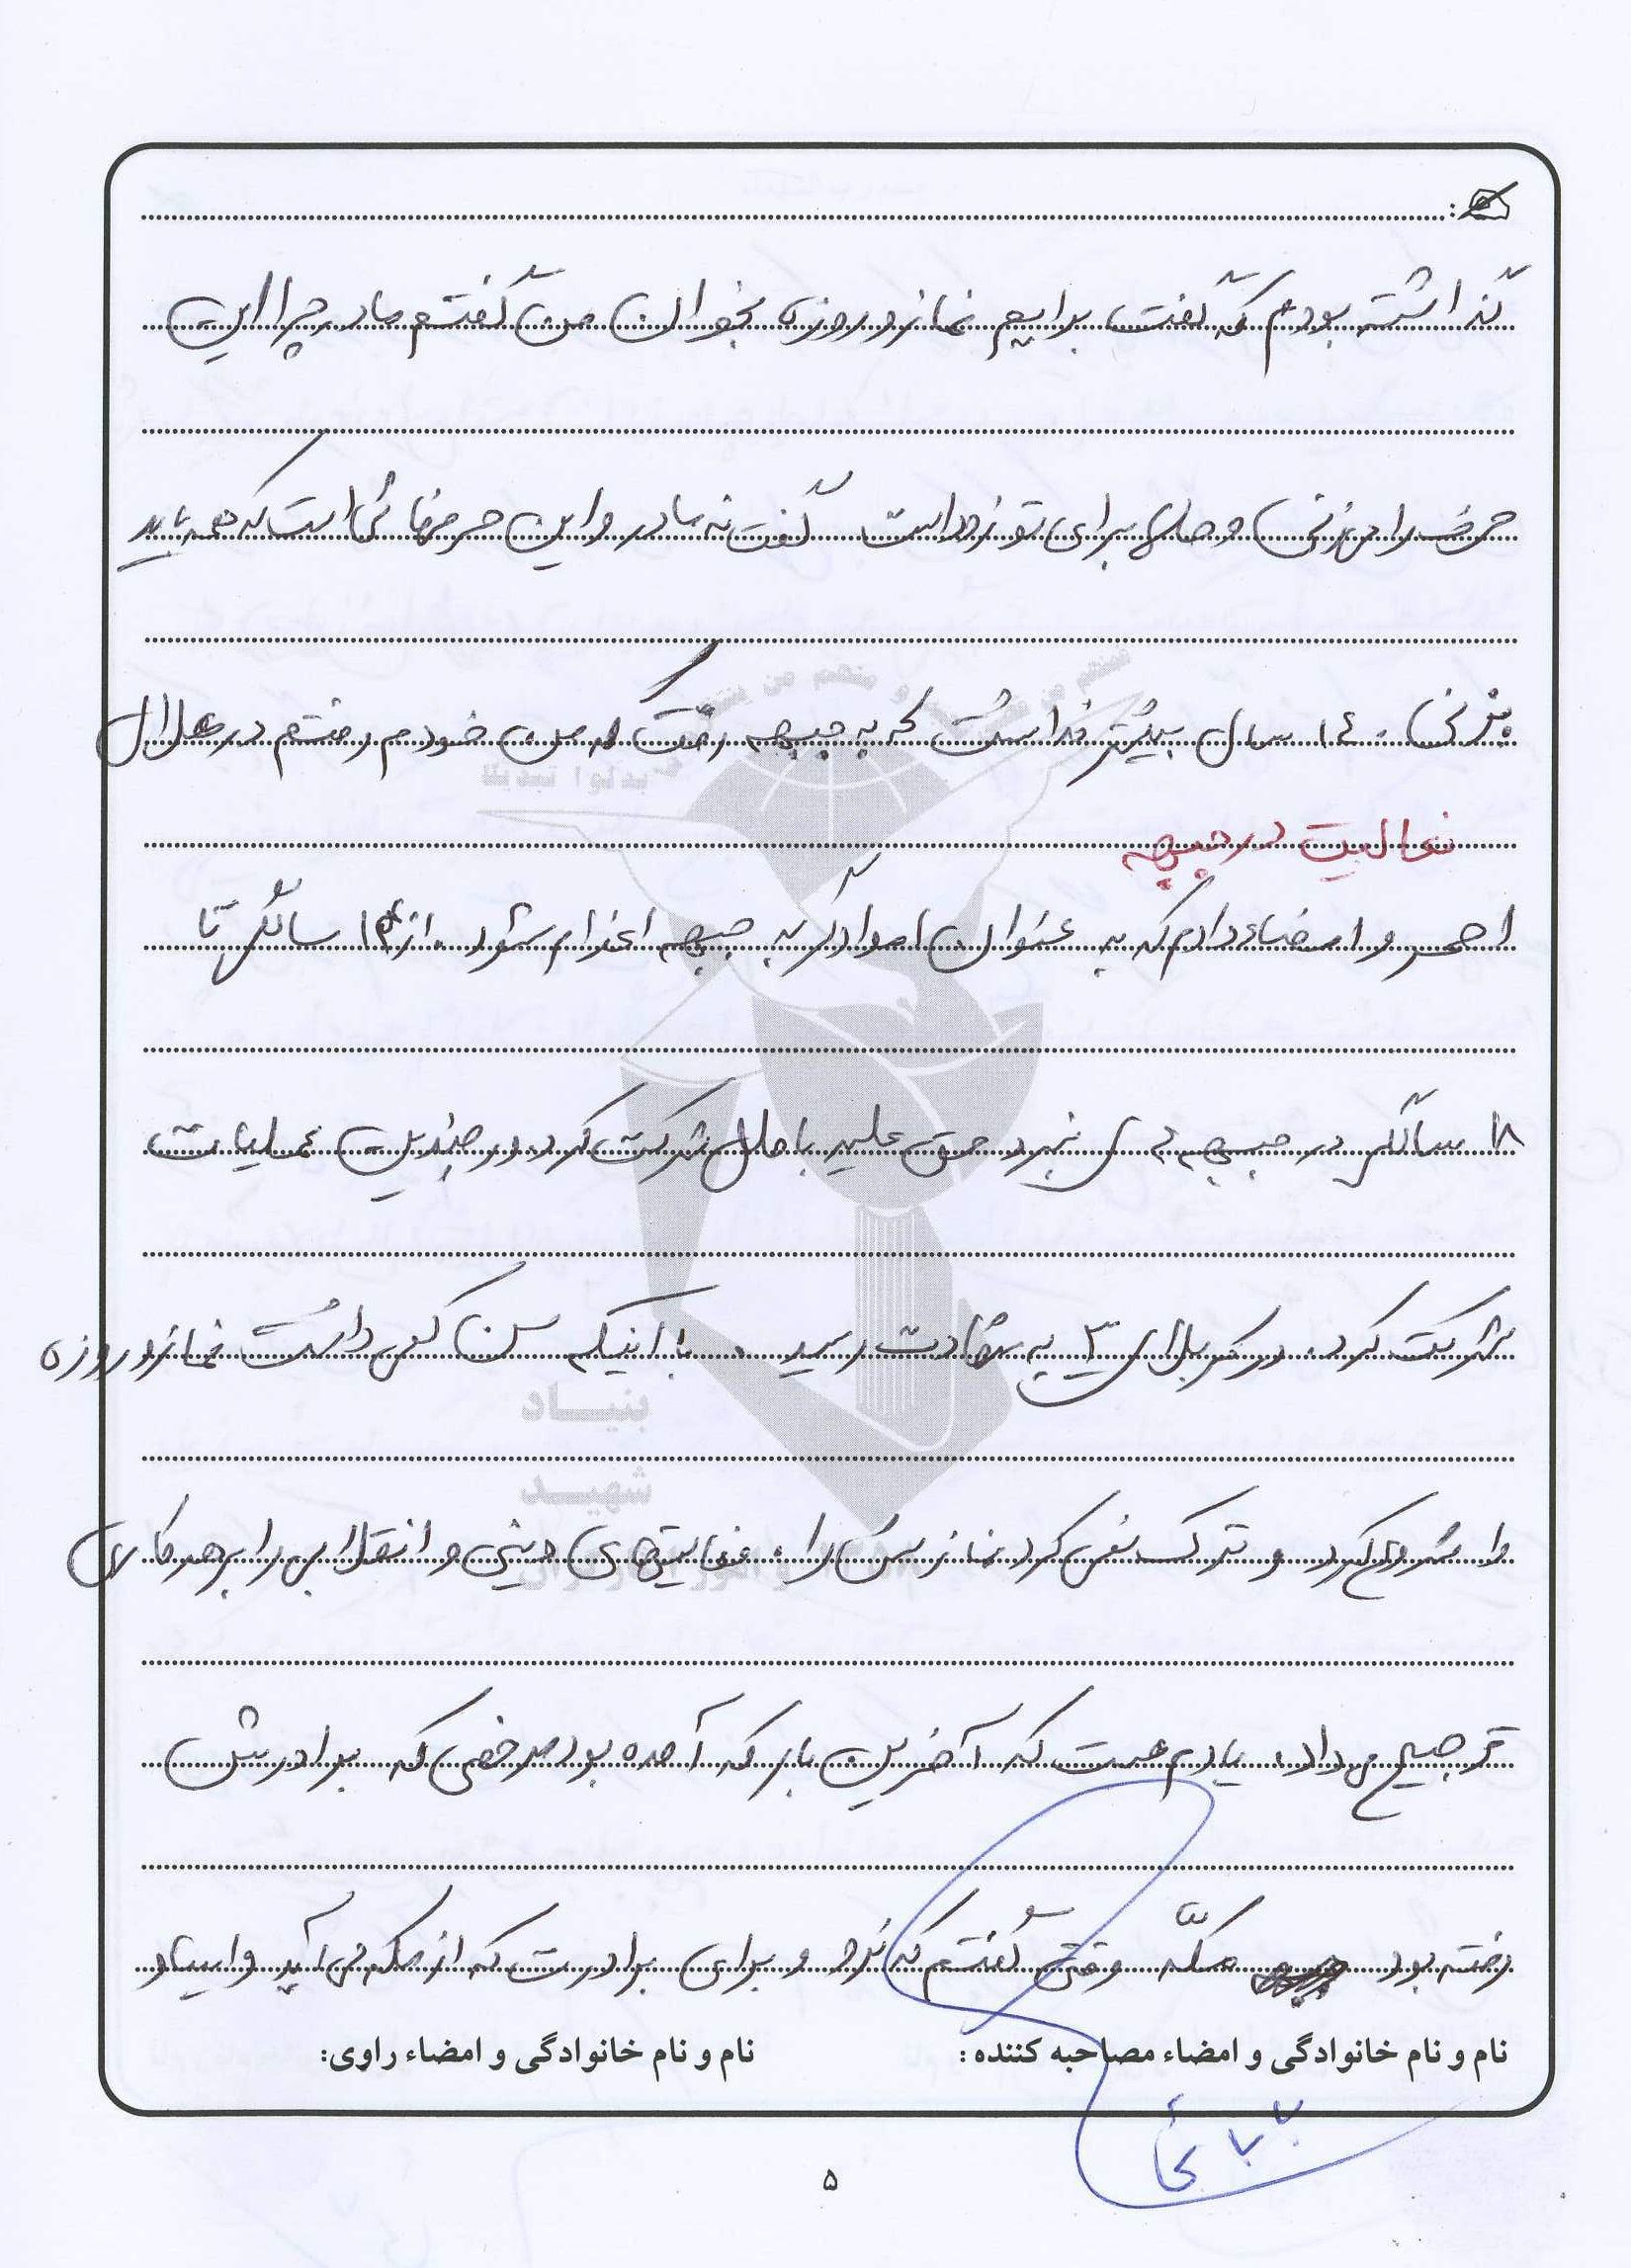 گذاشته بودم که گفت برایم نماز و روزه بخوان من گفتم مادر چرا این
حرف را می‌زنی و حالا برای تو زود است گفت نه مادر و این حرفهائی است که همه باید
بزنی. ۱۴ سال بیشتر نداشت که به جبهه رفت من خودم رفتم در هلال
فعالیت در جبهه
احمر و امضاء دادم که به عنوان امدادگر به جبهه اعزام شود. از ۱۴ سالگی تا
۱۸ سالگی در جبهه های نبرد حق علیه باطل شرکت کرد. در چندین عملیات
شرکت کرد. در کربلای ۴ به شهادت رسید. با اینکه سن کمی داشت نماز و روزه
را شروع کرد و ترک نمی کرد نمازش را. فعالیتهای دینی و انقلابی را بر هر کاری
ترجیح می داد. یادم هست که آخرین بار که آمده بود مرخصی که برادرش
رفته بود مکّه وقتی گفتم که نرو و برای برادرت که از مکه می آید وایساد
نام و نام خانوادگی و امضاء مصاحبه کننده: نام و نام خانوادگی و امضاء راوی:
بابائی
۵
بنیاد
شهید